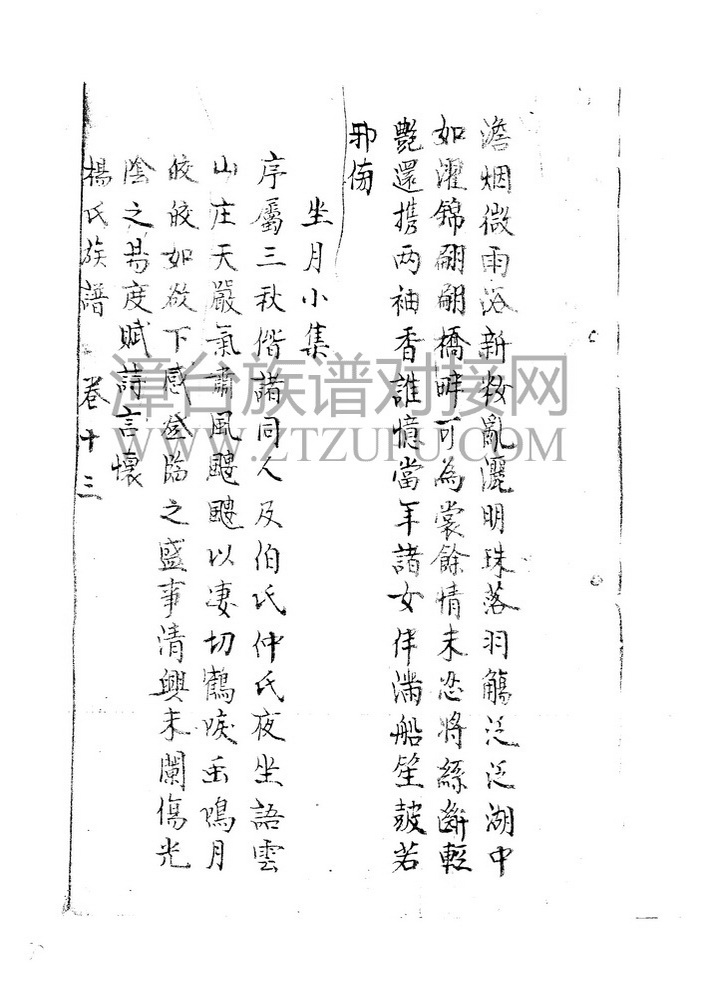 澹烟微雨浴新妝亂灑明珠落羽觴泛泛湖中
如濯錦翩翩橋畔可為裳餘情未忍將絲斷輕
艷還携两袖香誰憶當年諸女伴滿船笙皷若
耶傍
坐月小集
序屬三秋偕諸同人及伯氏仲氏夜坐語雲
山庄天嚴氣肅風颼颼以凄切鶴唳玉鳴月
皎皎如欲下感登臨之盛事清興未闌傷光
陰之易度賦詩言懷
楊氏族譜 卷十三
漳台族谱对接网
WWW.ZTZUPU.COM